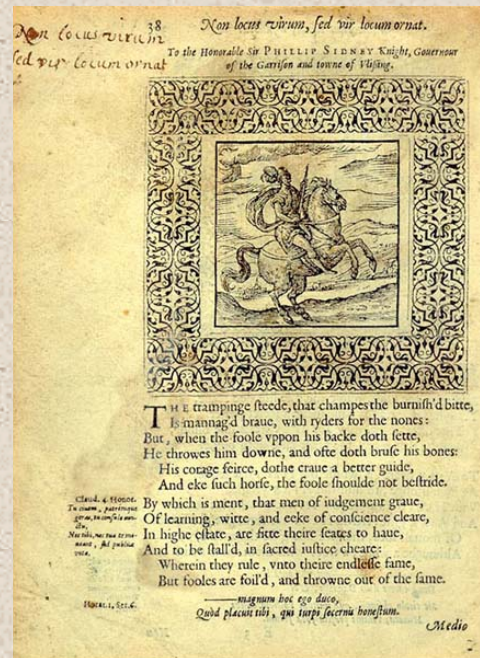 Non locus virum
sed vir locum ornat
38 Non locus virum, ſed vir locum ornat.
To the Honorable Sir PHILLIP SIDNEY Knight, Gouernour
of the Garriſon and towne of Vliſing.
THE trampinge ſteede, that champes the burniſh'd bitte,
Is mannag'd braue, with ryders for the nones:
But, when the foole vppon his backe doth ſette,
He throwes him downe, and ofte doth bruſe his bones:
His corage feirce, dothe craue a better guide,
And eke ſuch horſe, the foole ſhoulde not beſtride.
Claud. 4. Honor.
Tu ciuem, patremque
geras, tu conſule
Non tibi, nec tua te
moueant, ſed publica
vota.
By which is ment, that men of iudgement graue,
Of learning, witte, and eeke of conſcience cleare,
In highe eſtate, are fitte theire ſeates to haue,
And to be ſtall'd, in ſacred iuſtice cheare:
Wherein they rule, vnto theire endleſſe fame,
But fooles are foil'd, and throwne out of the ſame.
Horat. 1, Ser. 6.
magnum hoc ego duco,
Quòd placui tibi, qui turpi ſecernis honeſtum.
Medio